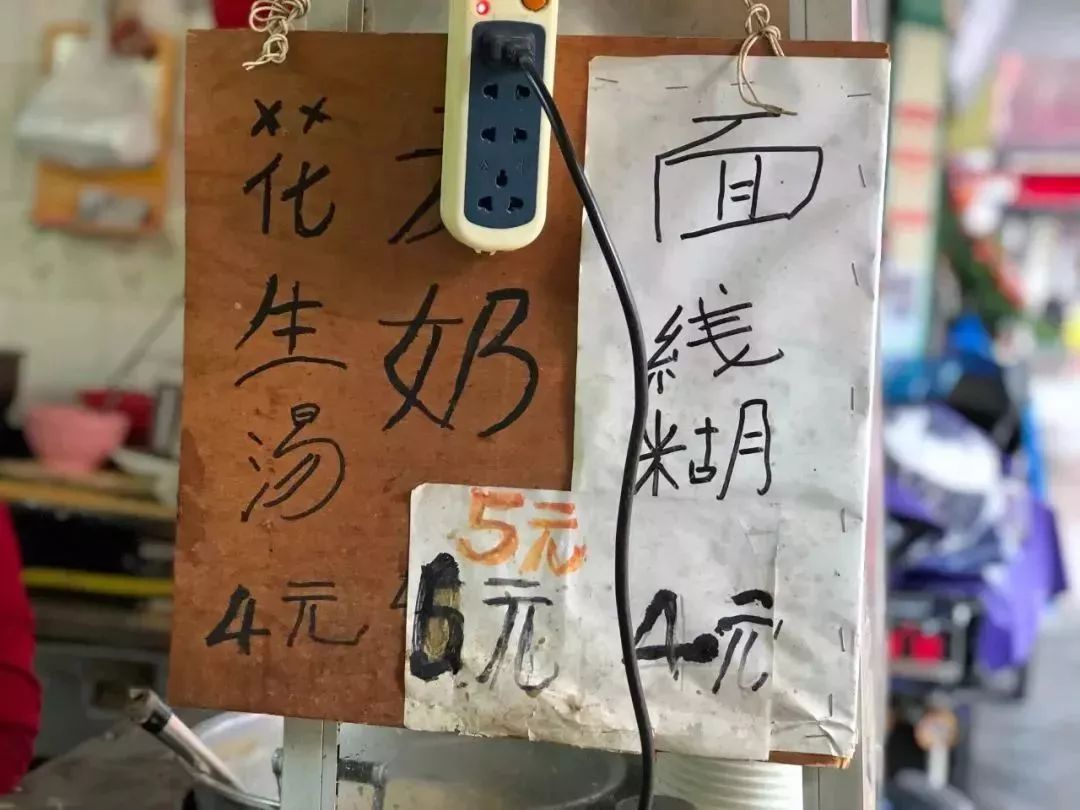 花生汤
4元
奶
5元
6元
面线糊
4元